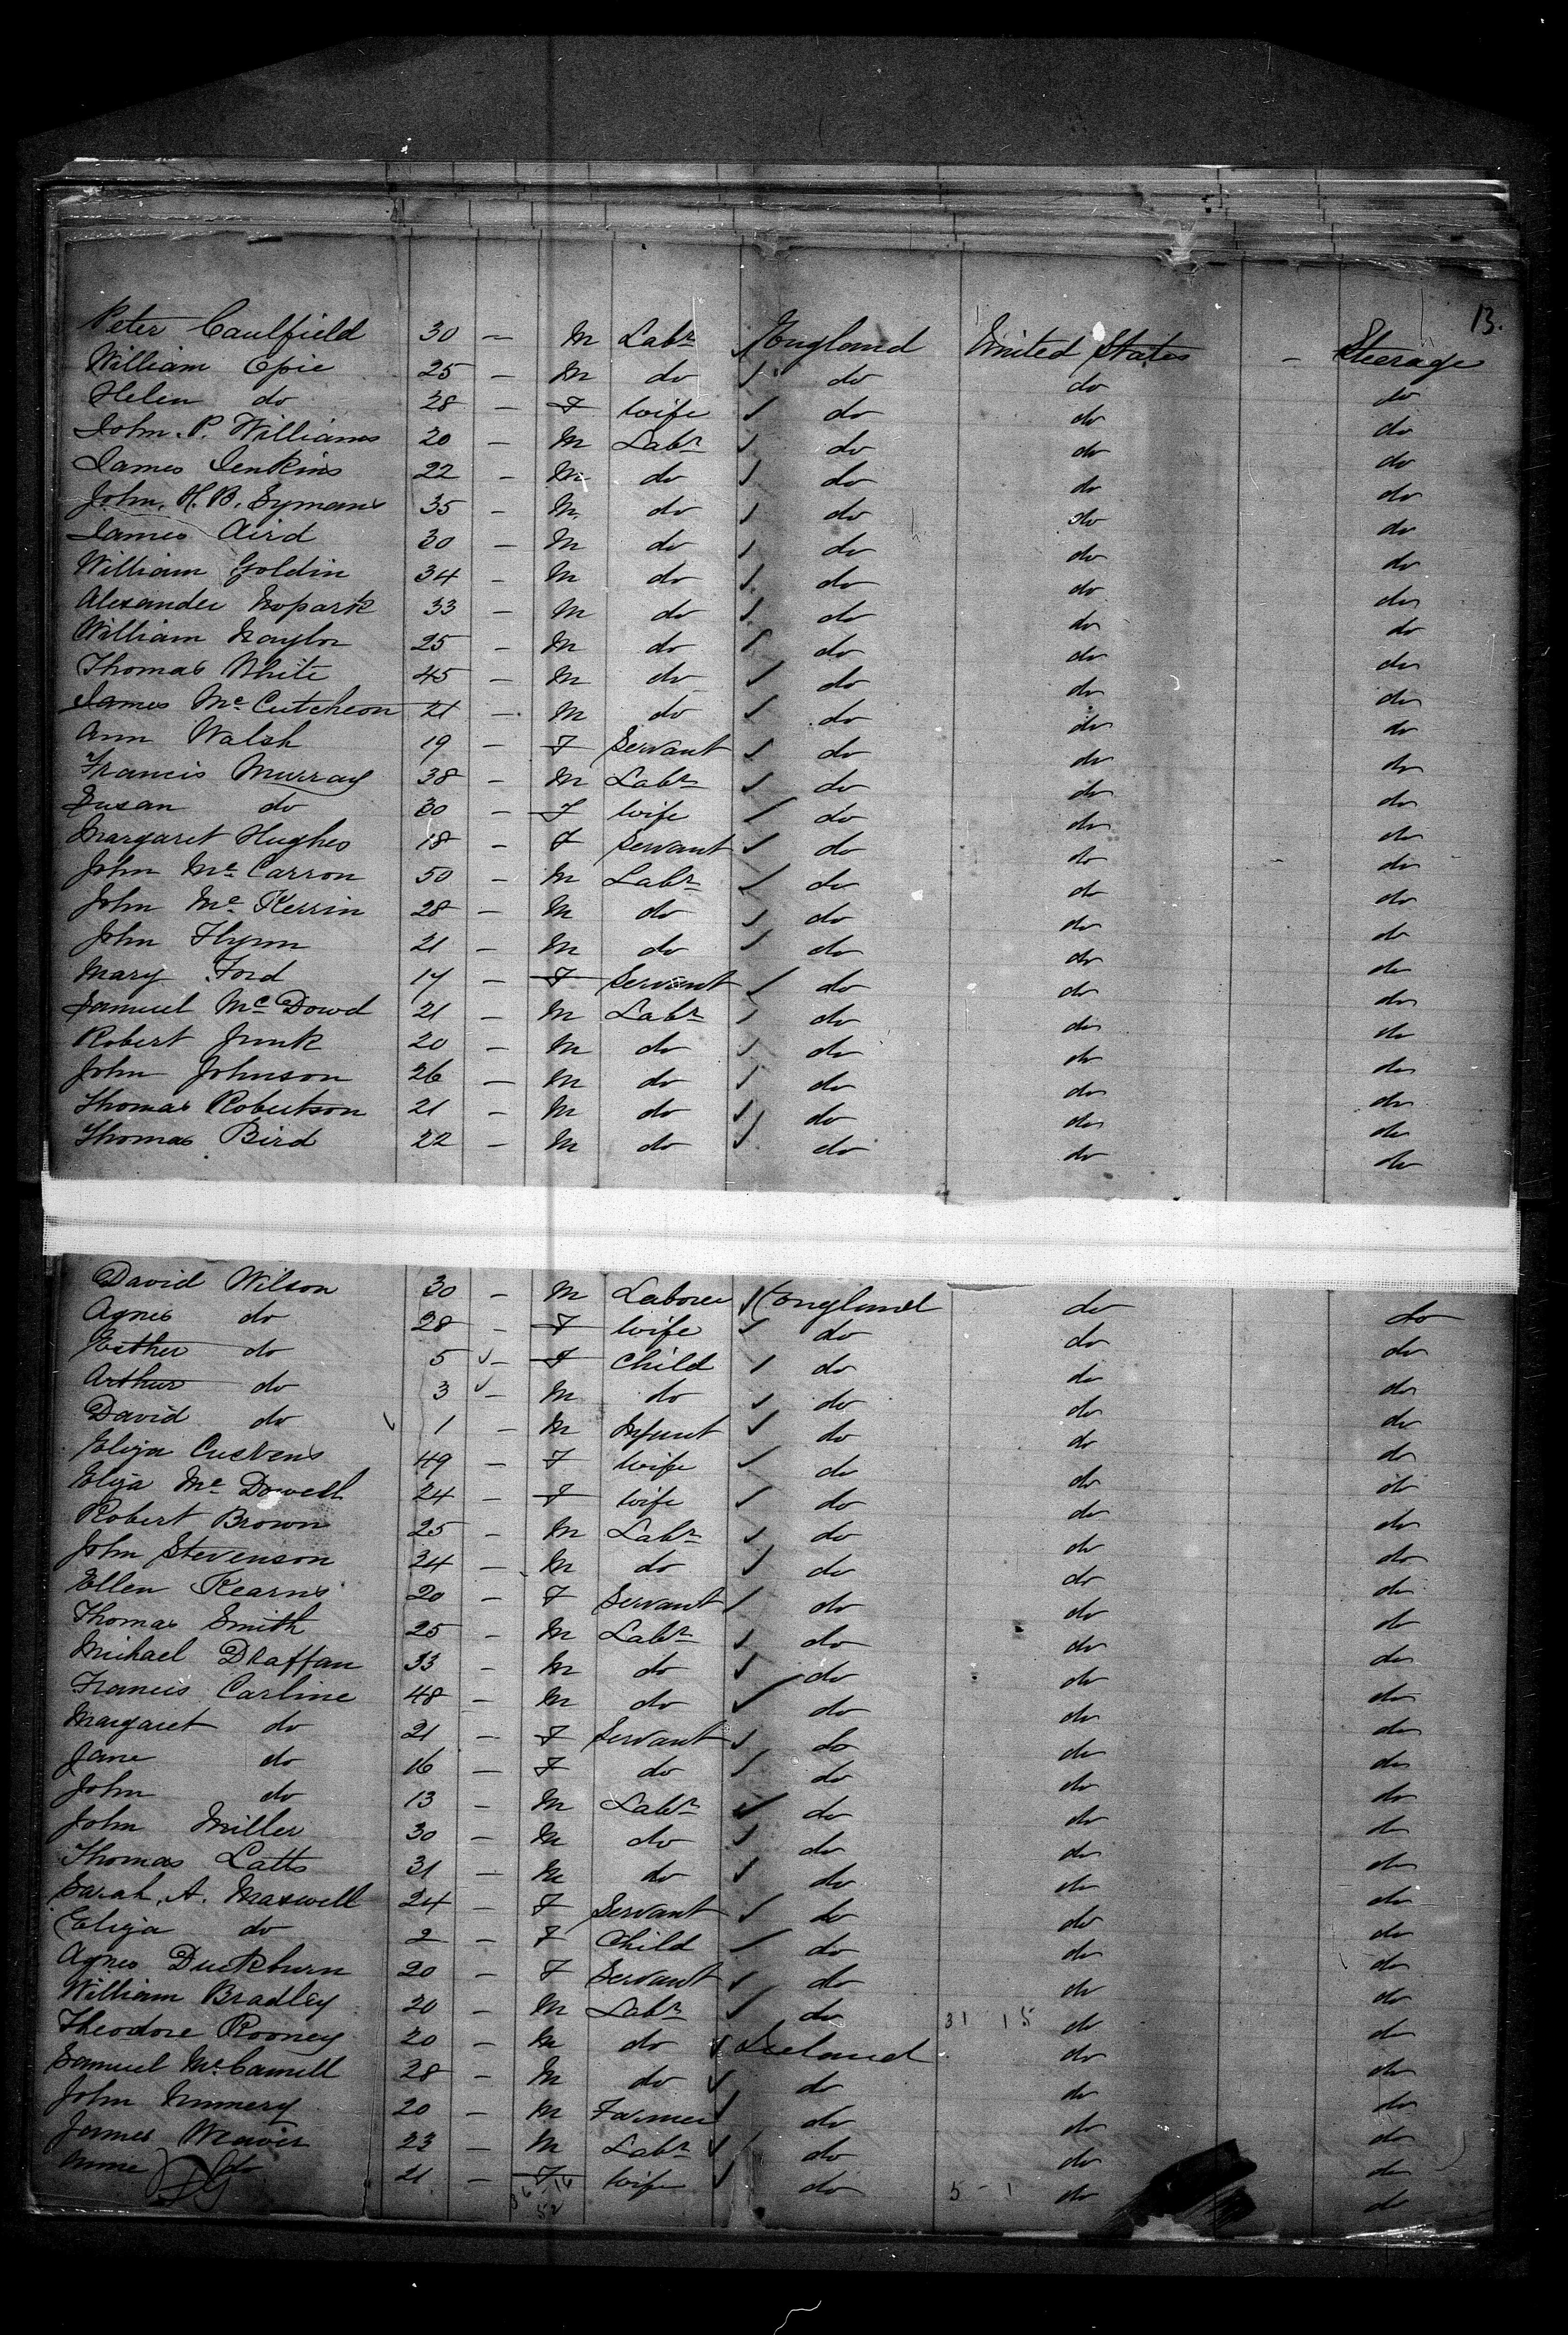 13.
Peter Caulfield 30 — M Labr England United States — Steerage
William Opie 25 — M do do do do
Helen do 28 — F wife do do do
John. P. Williams 20 — M Labr do do do
James Jenkins 22 — M do do do do
John. H. B. Symans 35 — M do do do do
James Aird 30 — M do do do do
William Goldin 34 — M do do do do
Alexander Mopark 33 — M do do do do
William Naylor 25 — M do do do do
Thomas White 45 — M do do do do
James McCutcheon 21 — M do do do do
Ann Walsh 19 — F Servant do do do
Francis Murray 38 — M Labr do do do
Susan do 30 — F wife do do do
Margaret Hughes 18 — F Servant do do do
John McCarron 50 — M Labr do do do
John McKerrin 28 — M do do do do
John Flynn 21 — M do do do do
Mary Ford 17 — F Servant do do do
Samuel McDowd 21 — M Labr do do do
Robert Junk 20 — M do do do do
John Johnson 26 — M do do do do
Thomas Robertson 21 — M do do do do
Thomas Bird 22 — M do do do do
David Wilson 30 — M Laborer England do do
Agnes do 28 — F wife do do do
Esther do 5 — F Child do do do
Arthur do 3 — M do do do do
David do 1 — M Infant do do do
Eliza 49 — F wife do do do
Eliza McDowell 24 — F wife do do do
Robert Brown 25 — M Labr do do do
John Stevenson 24 — M do do do do
Ellen Kearns 20 — F Servant do do do
Thomas Smith 25 — M Labr do do do
Michael Draffan 33 — M do do do do
Francis Carline 48 — M do do do do
Margaret do 21 — F Servant do do do
Jane do 16 — F do do do do
John do 13 — M Labr do do do
John Miller 30 — M do do do do
Thomas Latts 31 — M do do do do
Sarah. A. Maxwell 24 — F Servant do do do
Eliza do 2 — F Child do do do
Agnes Duckburn 20 — F Servant do do do
William Bradley 20 — M Labr do 31 15 do do
Theodore Rooney 20 — M do Ireland do do
Samuel McCamell 28 — M do do do do
John 20 — M Farmer do do do
James Weavir 23 — M Labr do do do
do 21 — F wife do 5 - 1 do do
36 16
52